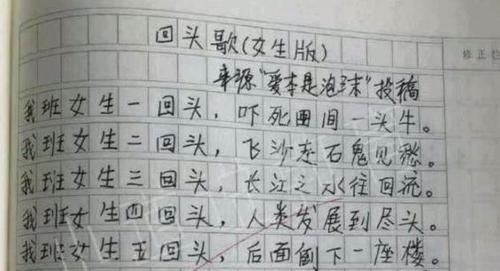 回头歌(女生版)
来源“爱本是泡沫”投稿
我班女生一回头，吓死田间一头牛。
我班女生二回头，飞沙走石鬼见愁。
我班女生三回头，长江之水往回流。
我班女生四回头，人类发展到尽头。
我班女生五回头，后面倒下一座楼。
修正栏